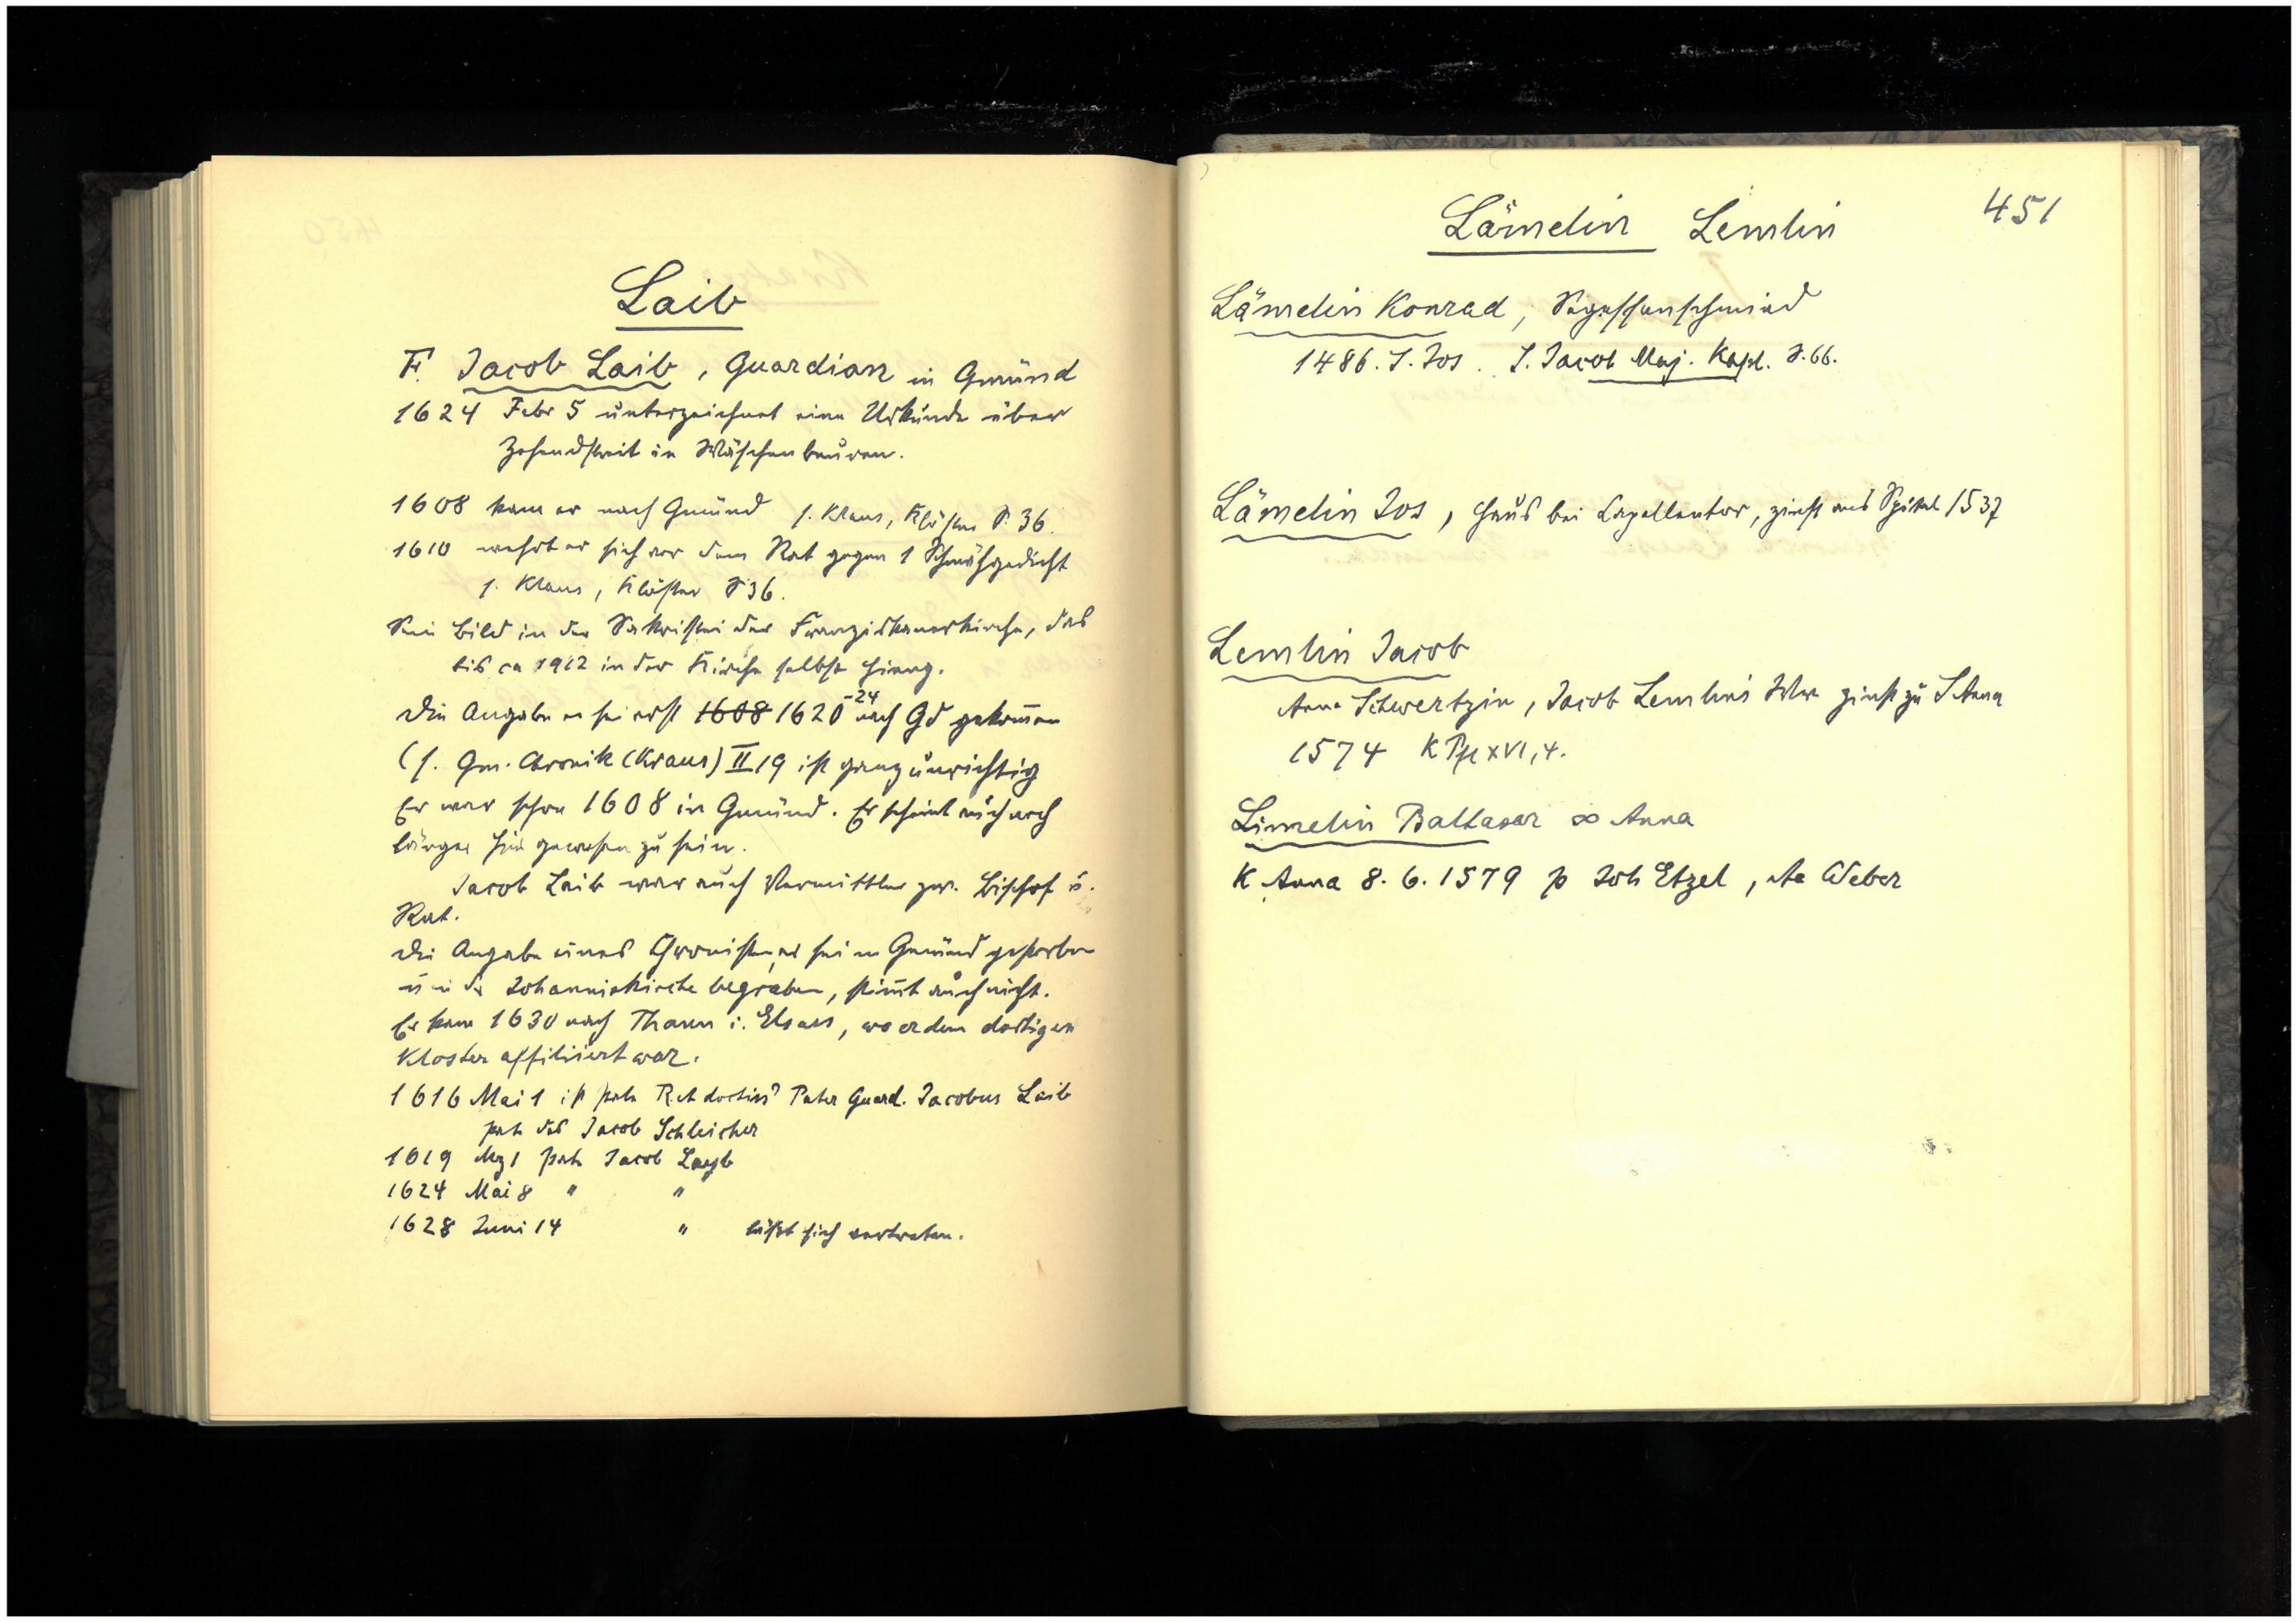 Laib
F. Jacob Laib, Guardian in Gmünd
1624 Febr 5 unterzeichnet eine Urkunde über
Zehendstreit in Wäschenbeuren.
1608 kam er nach Gmünd s. Klaus, Klöster S. 36.
1610 wehrt er sich vor dem Rat gegen 1 Schmähgedicht
s. Klaus, Klöster S 36.
Sein Bild in der Sakristei der Franziskanerkirche, das
bis ca 1912 in der Kirche selbst hieng.
Die Angabe er sei erst 1608 1620-24 nach Gd gekom̄en
(s. Gm. Chronik (Kraus) II, 19 ist ganz unrichtig
Er war schon 1608 in Gmünd. Er scheint auch noch
länger hier gewesen zu sein.
Jacob Laib war auch Vermittler zw. Bischof u.
Rat.
Die Angabe eines Chronisten, er sei in Gmünd gestorben
u in der Johanniskirche begraben, stim̄t auch nicht.
Er kam 1630 nach Thann i. Elsass, wo er dem dortigen
Kloster affiliiert war.
1616 Mai 1 ist Pate Pater Guard. Jacobus Laib
pat des Jacob Schleicher
1619 Mz 1 pat Jacob Layb
1624 Mai 8 " "
1628 Juni 14 " läßt sich vertreten.
451
Lämelin Lemlin
Lämelin Konrad, Segessenschmied
1486. S. Jos. S. Jacob Maj. Kapl. S. 66.
Lämelin Jos, Haus bei Capellentor, zinst ans Spital 1537
Lemlin Jacob
Anna Schwertzin, Jacob Lemlins Ww zinst zu S Anna
1574 K Pfl XVI, 4.
Limelin Baltasar ∞ Anna
K Anna 8. 6. 1579 p Joh Etzel, Aa Weber